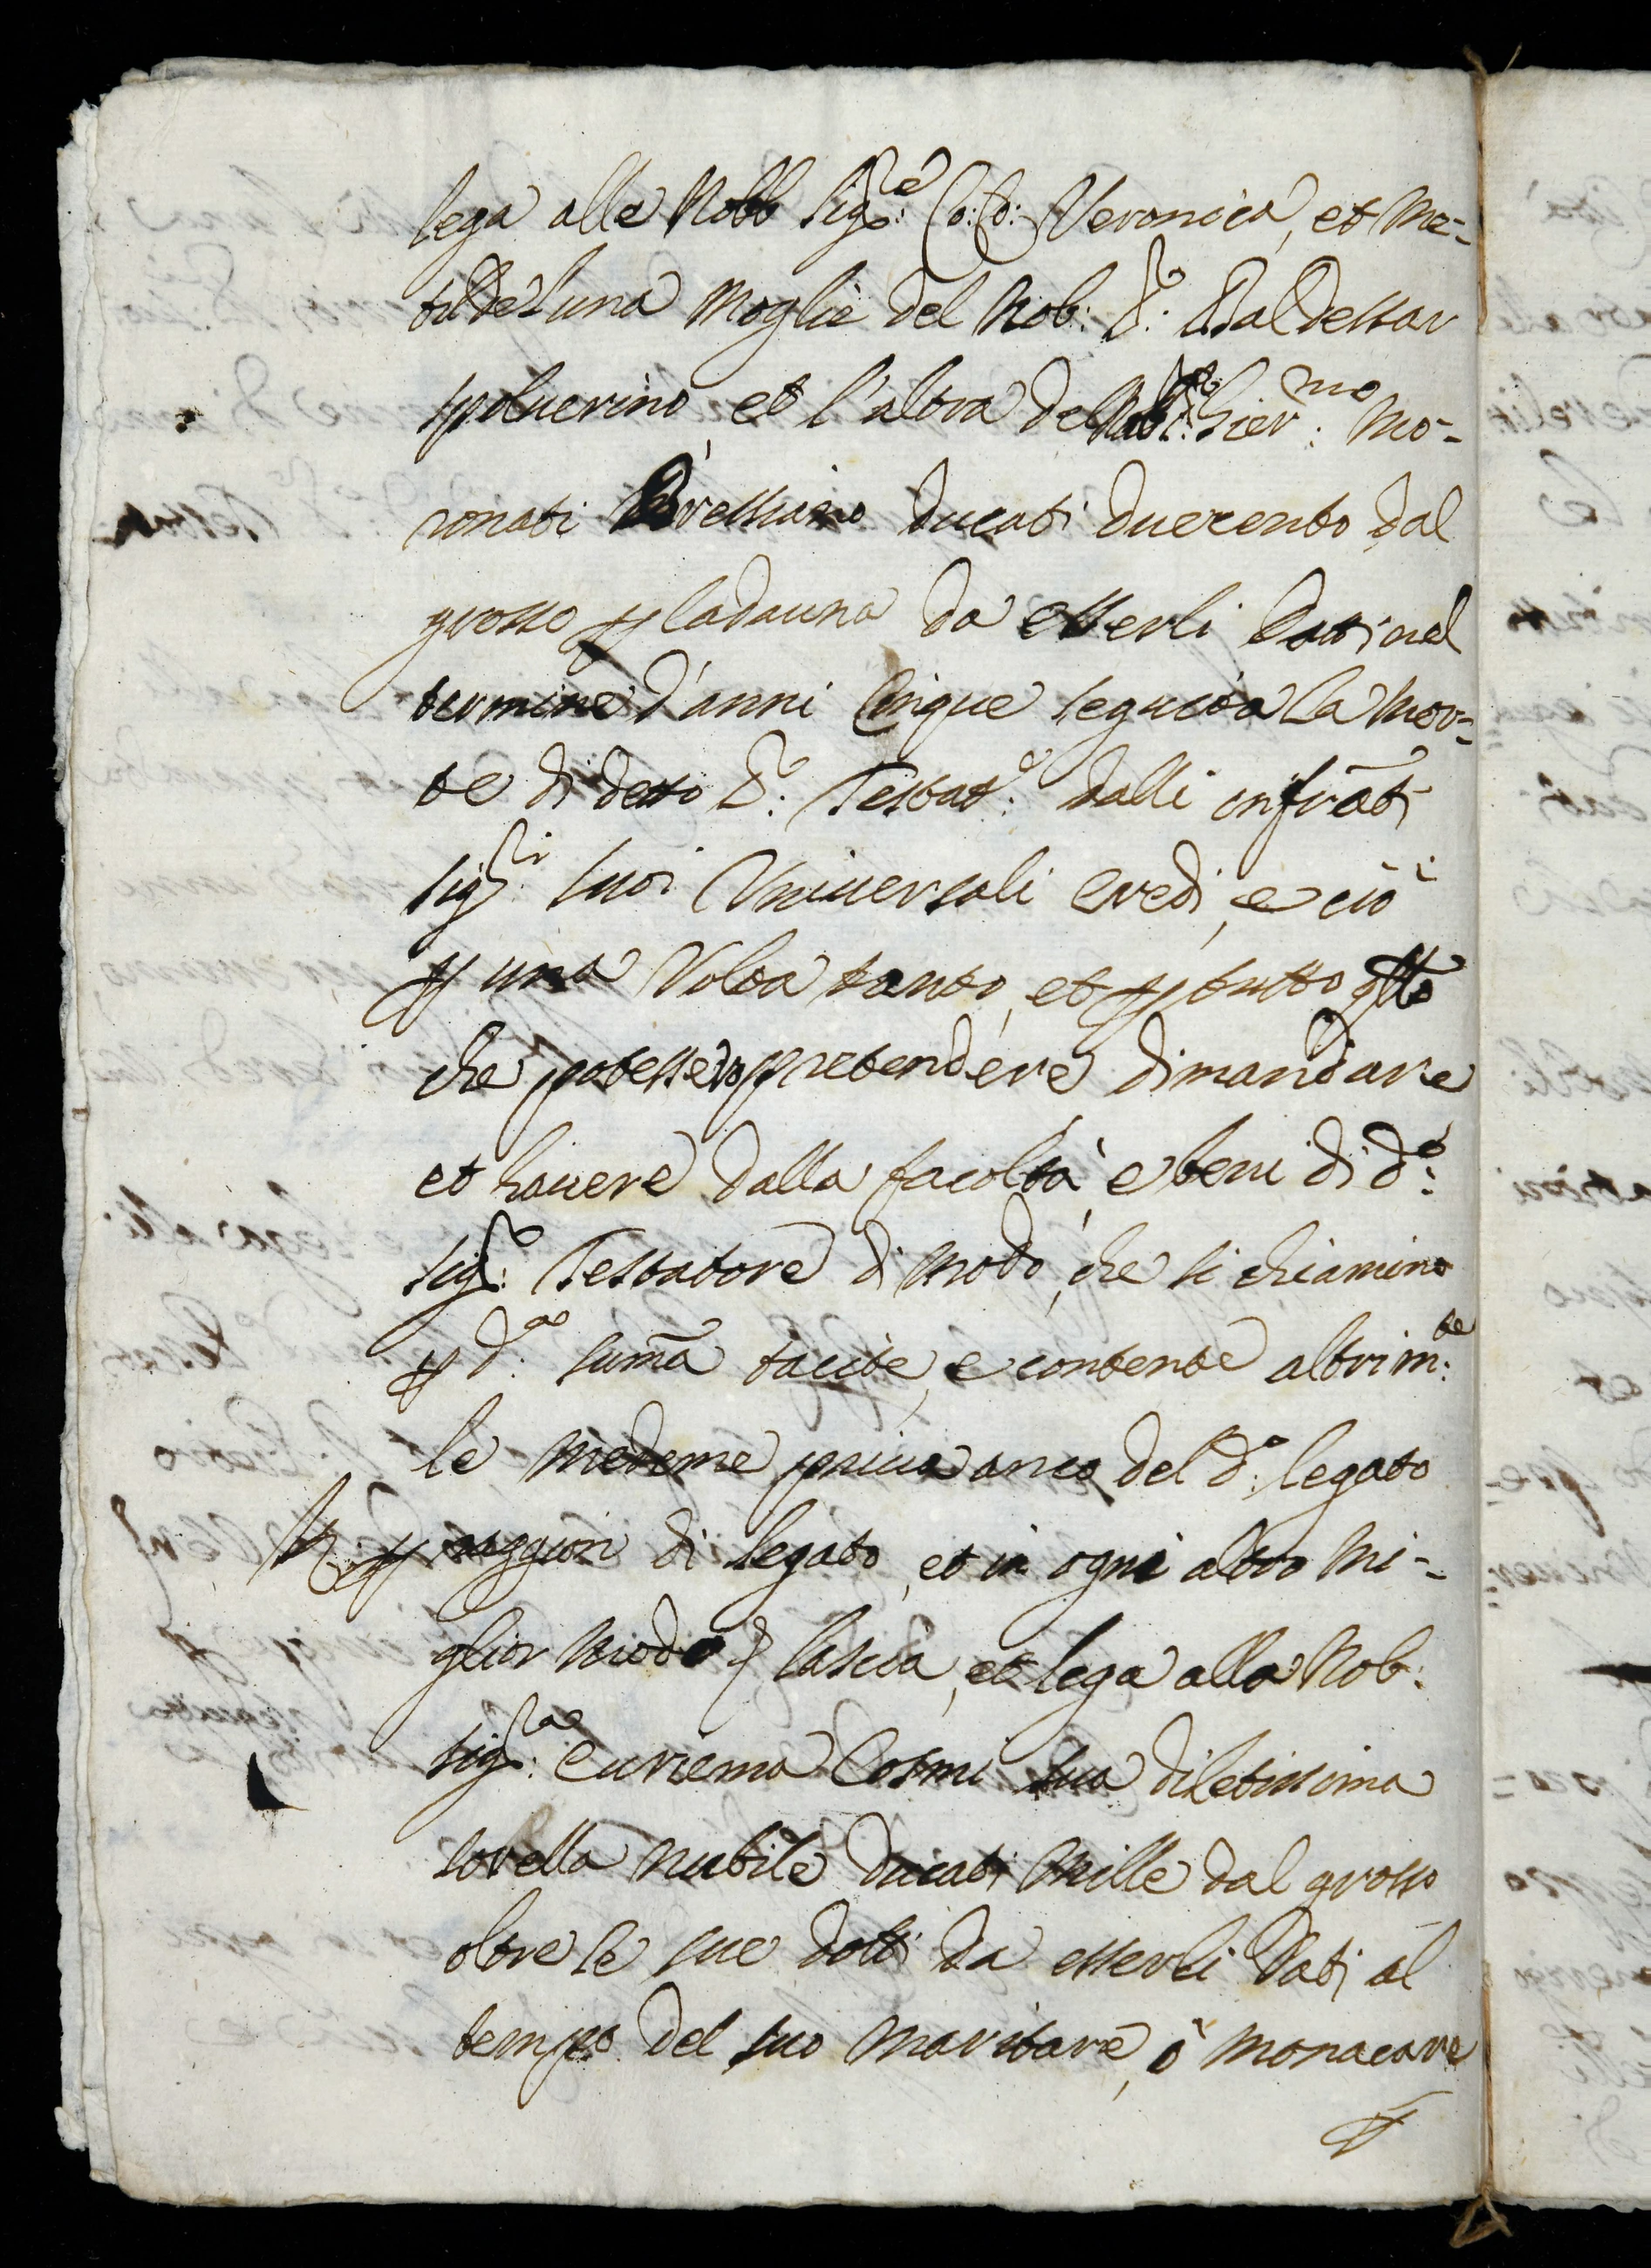 lega alle Nobb Sig.re Co: Co: Veronica, et Me-
tilde l'una Moglie del Nob: S.r Baldessar
Spolverino, et l'altra del Nob: S.r Hier.mo Mo-
ronati Bressiano ducati duecento dal
grosso p ladauna da esserli dati nel
termine d'anni Cinque seguita la Mor-
te di detto S.r Testat.e dalli infrãti
Sig.ri suoi Universali eredi, e ciò
p una Volta tanto, et p tutto qllo
che potessero pretendere dimandare
et havere dalla facoltà, e beni di d.o
Sig.r Testatore di modo, che si chiamino
p d.a sum̃a tacite, e contente altrim.te
le medeme priva anco del d.o legato
It: p raggion di legato, et in ogni altro Mi-
glior Modo lascia, et lega alla Nob:
Sig.ra Euriema Cosmi sua diletissima
sorella nubile ducati Mille dal grosso
oltre le sue dotti da esserli dati al
tempo del suo Maritare, ò Monacare
p